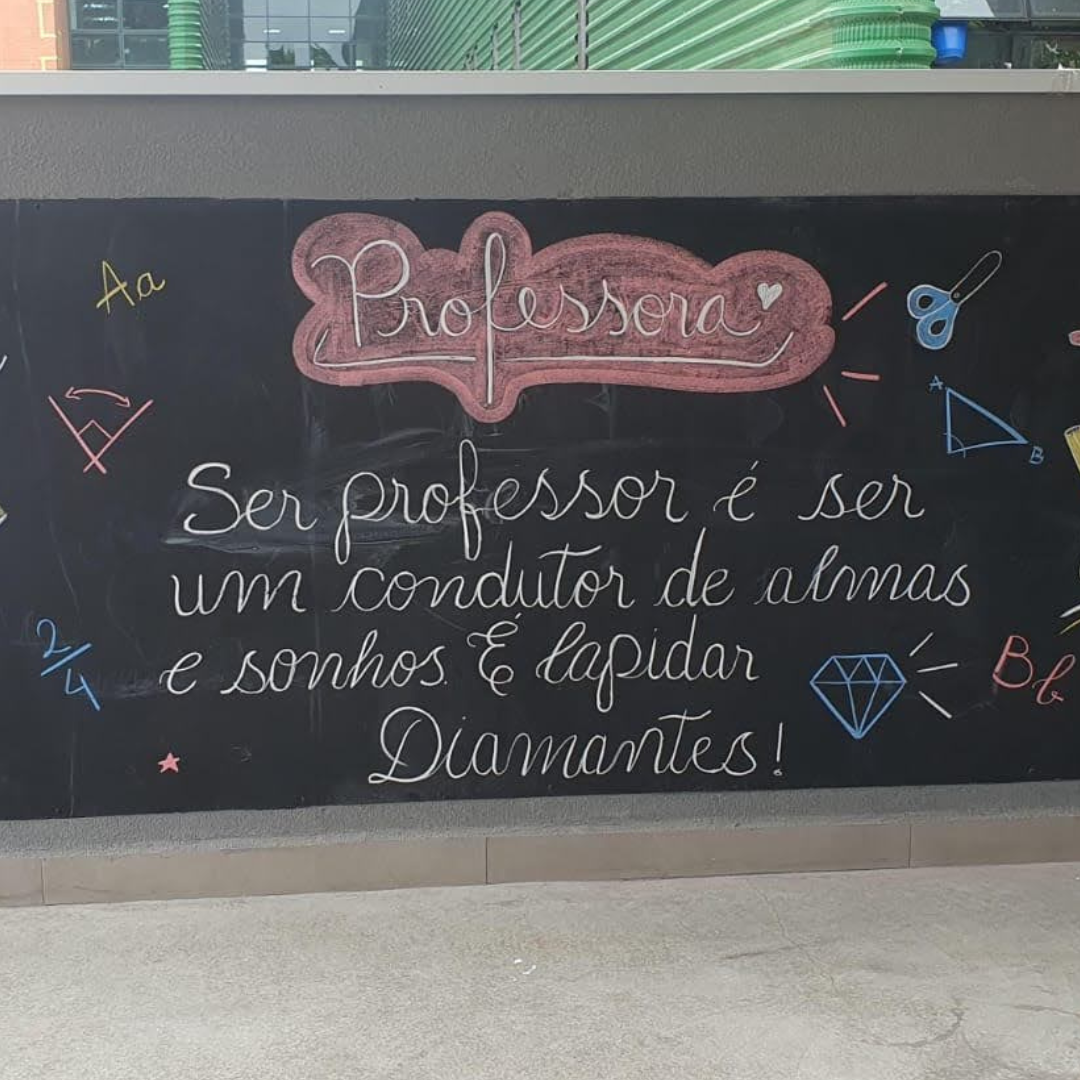 Aa
Professora
A
B
Ser professor é ser
um condutor de almas
e sonhos. É lapidar
Diamantes!
2/4
Bb